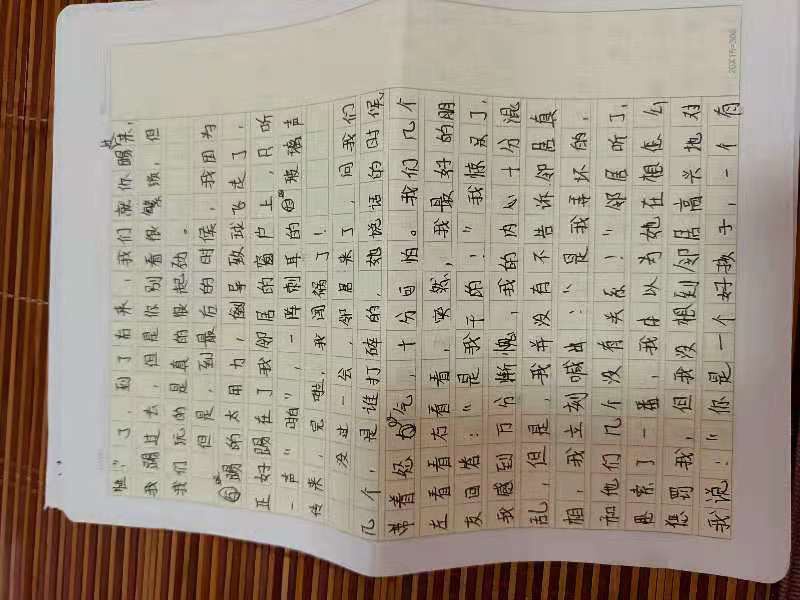 胜？了，到了右来，我们就你踢来，
我踢过去，但是你别看很繁琐，但
我们玩的是真的很起劲。
但是，到最后的时候，我因为
踢的太用力，倒导致球飞走了，
正好踢在了我邻居的窗户上，只听
一声“啪”，一阵刺耳的玻璃声
传来，完啦，我闯祸了！
没过一会，邻居来了，问我们
几个，是谁打碎的，她说话的时候
带着怒气，十分可怕。我们几个
左看看右看看，突然，我最好的朋
友回答：“是我干的！”我惊呆了，
我感到万分惭愧，我的内心十分混
乱，但是，我并没有不告诉邻居真
相，我立刻喊出：“是我弄坏的，
和他们几个没有关系！”邻居听了，
思索了一番，我在以为她在想怎么
惩罚我，但我没想到邻居高兴地对
我说：“你是一个好孩子，一个有
20X15=300